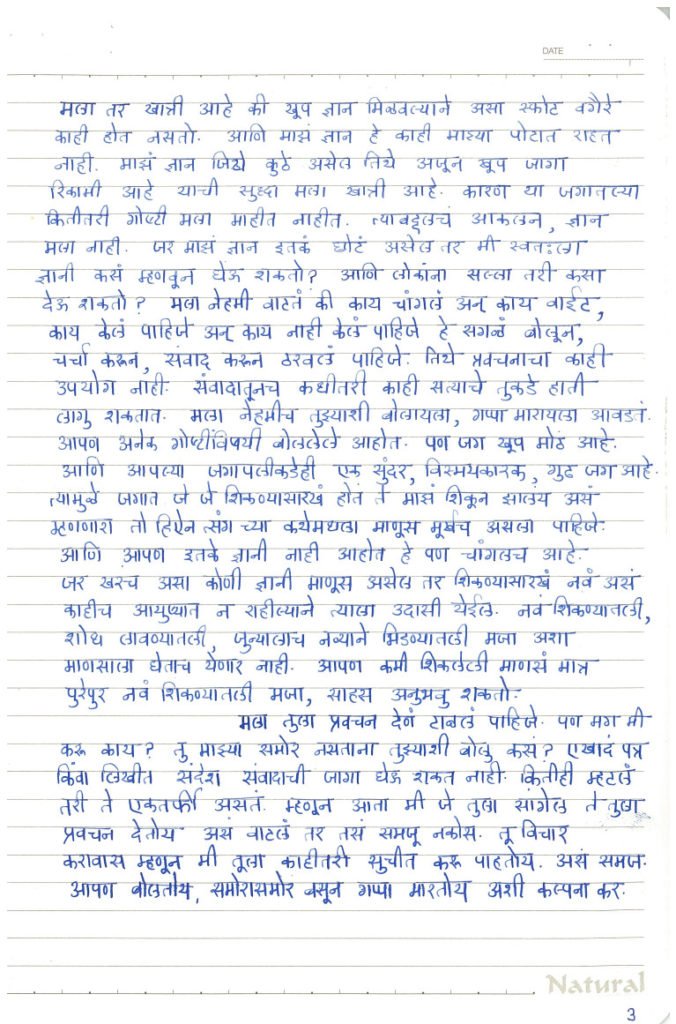 DATE
मला तर खात्री आहे की खूप ज्ञान मिळवल्याने असा स्फोट वगैरे
काही होत नसतो. आणि माझं ज्ञान हे काही माझ्या पोटात राहत
नाही. माझं ज्ञान जिथे कुठे असेल तिथे अजून खूप जागा
रिकामी आहे याची सुद्धा मला खात्री आहे. कारण या जगातल्या
कितीतरी गोष्टी मला माहीत नाहीत. त्याबद्दलचं आकलन, ज्ञान
मला नाही. जर माझं ज्ञान इतकं छोटं असेल तर मी स्वतःला
ज्ञानी कसं म्हणवून घेऊ शकतो? आणि लोकांना सल्ला तरी कसा
देऊ शकतो? मला नेहमी वाटतं की काय चांगलं अन् काय वाईट,
काय केलं पाहिजे अन् काय नाही केलं पाहिजे हे सगळं बोलून,
चर्चा करून, संवाद करून ठरवलं पाहिजे. तिथे प्रवचनाचा काही
उपयोग नाही. संवादातूनच कधीतरी काही सत्याचे तुकडे हाती
लागु शकतात. मला नेहमीच तुझ्याशी बोलायला, गप्पा मारायला आवडतं.
आपण अनेक गोष्टींविषयी बोललेले आहोत. पण जग खूप मोठं आहे.
आणि आपल्या जगापलीकडेही एक सुंदर, विस्मयकारक, गुढ जग आहे.
त्यामुळे जगात जे जे शिकण्यासारखं होतं ते माझं शिकून झालंय असं
म्हणणारा तो हिऐन त्संग च्या कथेमधला माणूस मूर्खच असला पाहिजे.
आणि आपण इतके ज्ञानी नाही आहोत हे पण चांगलच आहे.
जर खरचं असा कोणी ज्ञानी माणूस असेल तर शिकण्यासारखं नवं असं
काहीच आयुष्यात न राहील्याने त्याला उदासी येईल. नवं शिकण्यातली,
शोध लावण्यातली, जुन्यालाच नव्याने भिडण्यातली मजा अशा
माणसाला घेताच येणार नाही. आपण कमी शिकलेली माणसं मात्र
पुरेपुर नवं शिकण्यातली मजा, साहस अनुभवु शकतो.
मला तुला प्रवचन देणं टाळलं पाहिजे. पण मग मी
करू काय? तु माझ्या समोर नसताना तुझ्याशी बोलु कसं? एखादं पत्र
किंवा लिखीत संदेश संवादाची जागा घेऊ शकत नाही. कितीही म्हटलं
तरी ते एकतर्फी असतं. म्हणून आता मी जे तुला सांगेल ते तुला
प्रवचन देतोय असं वाटलं तर तसं समजू नकोस. तू विचार
करावास म्हणून मी तूला काहीतरी सुचीत करू पाहतोय. असं समज.
आपण बोलतोय, समोरासमोर बसून गप्पा मारतोय अशी कल्पना कर.
Natural
3